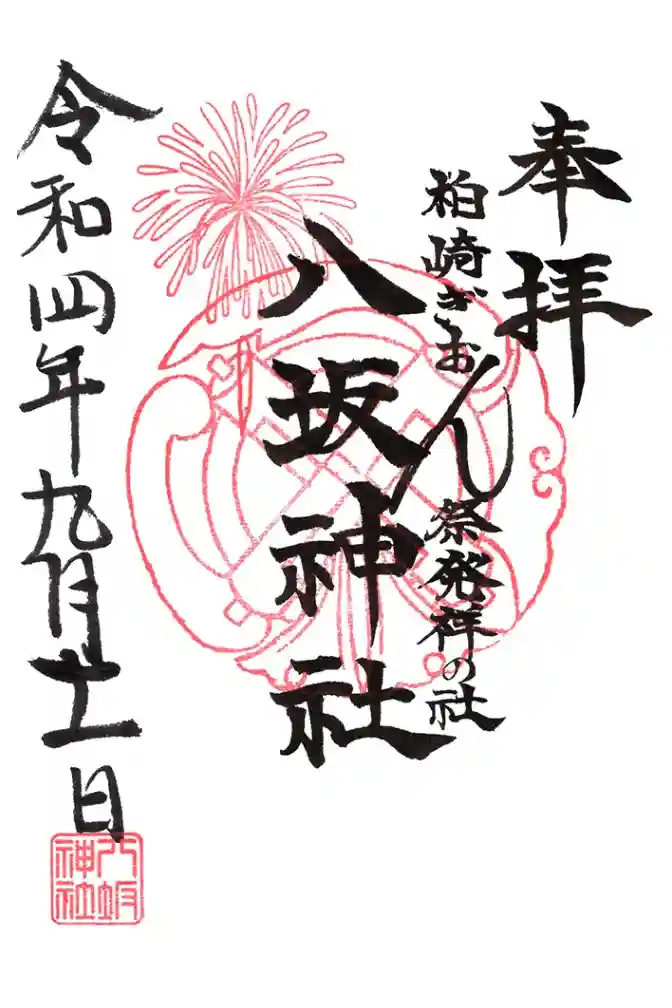 奉拝
柏崎ぎおん祭発祥の社
八坂神社
令和四年九月十一日
八坂神社